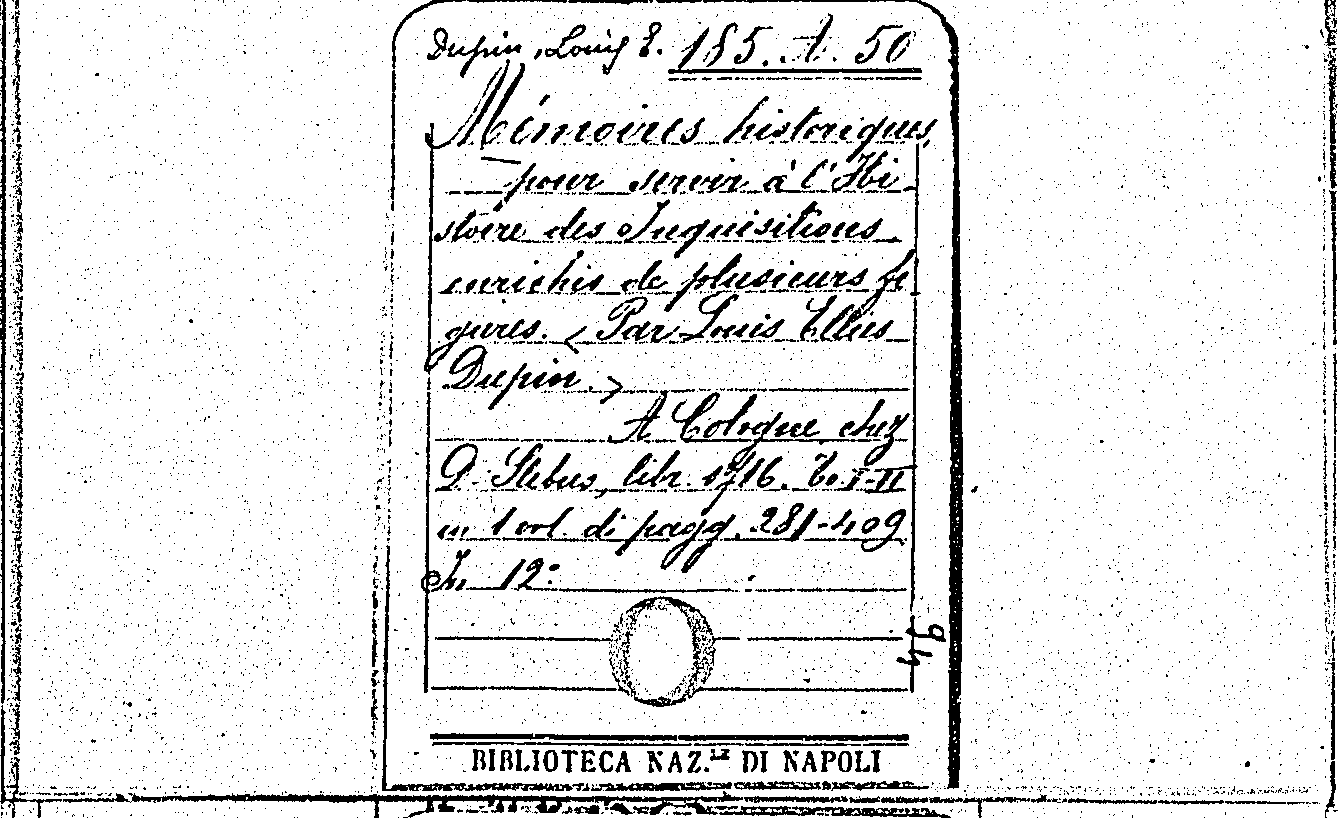 Dupin, Louis E. 185. A. 50
Mémoires historiques
pour servir à l'Hi-
stoire des Inquisitions
enrichis de plusieurs fi-
gures. < Par Louis Ellies
Dupin. >
A Cologne chez
D. Slebus, libr. 1716. To. I-II
in 1 vol. di pagg. 281-409
In 12°
94
BIBLIOTECA NAZ.LE DI NAPOLI